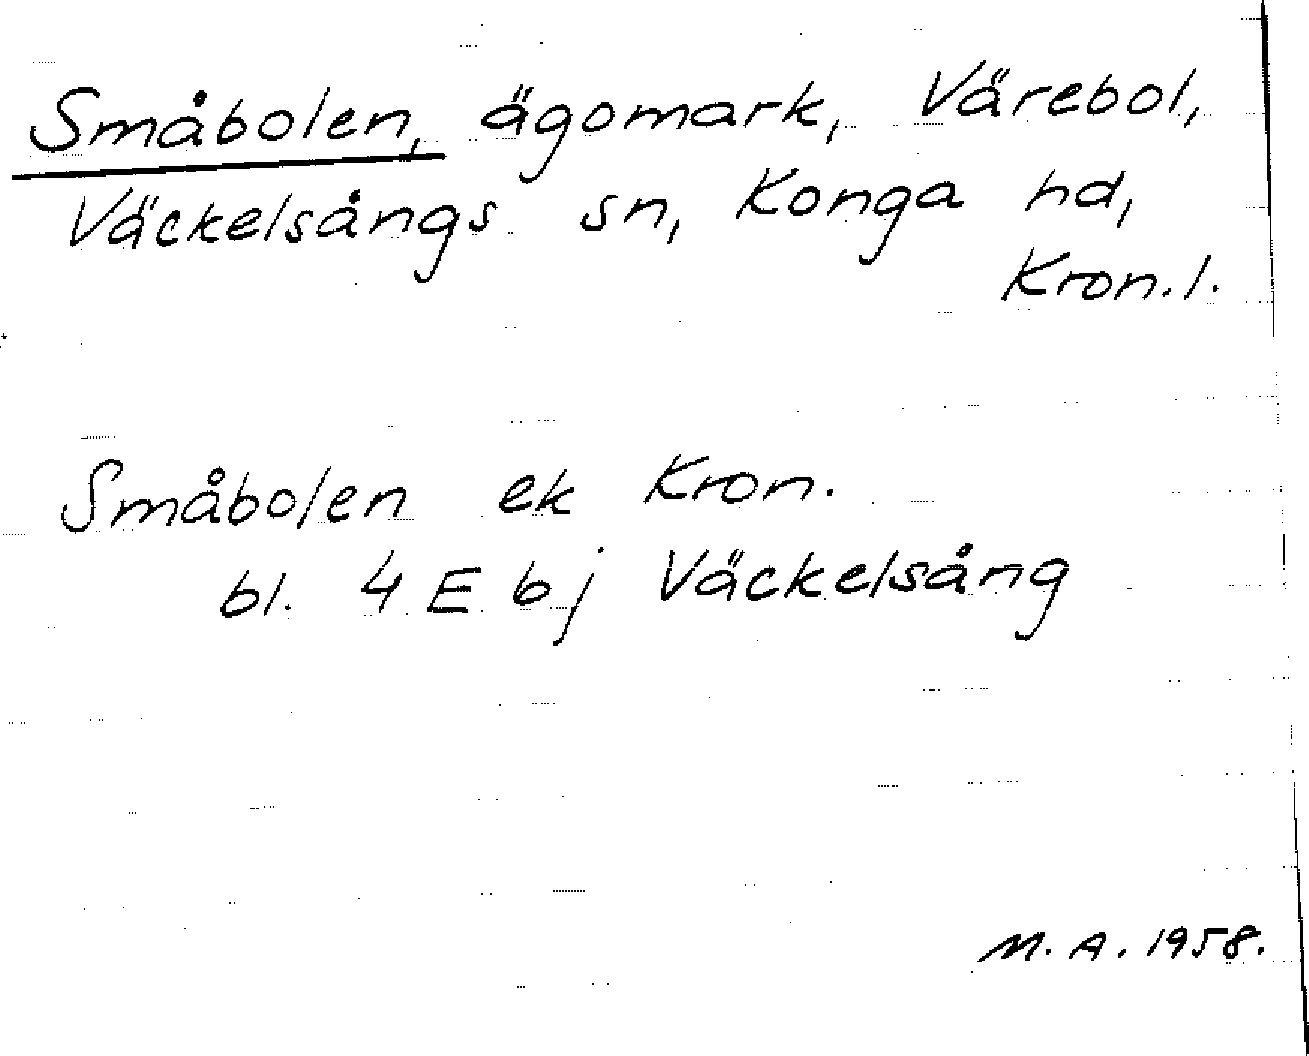 Småbolen, ägomark, Värebol,
Väckelsångs sn, Konga hd,
Kron.l.
Småbolen ek Kron.
bl. 4 E bj Väckelsång
M.A. 1958.